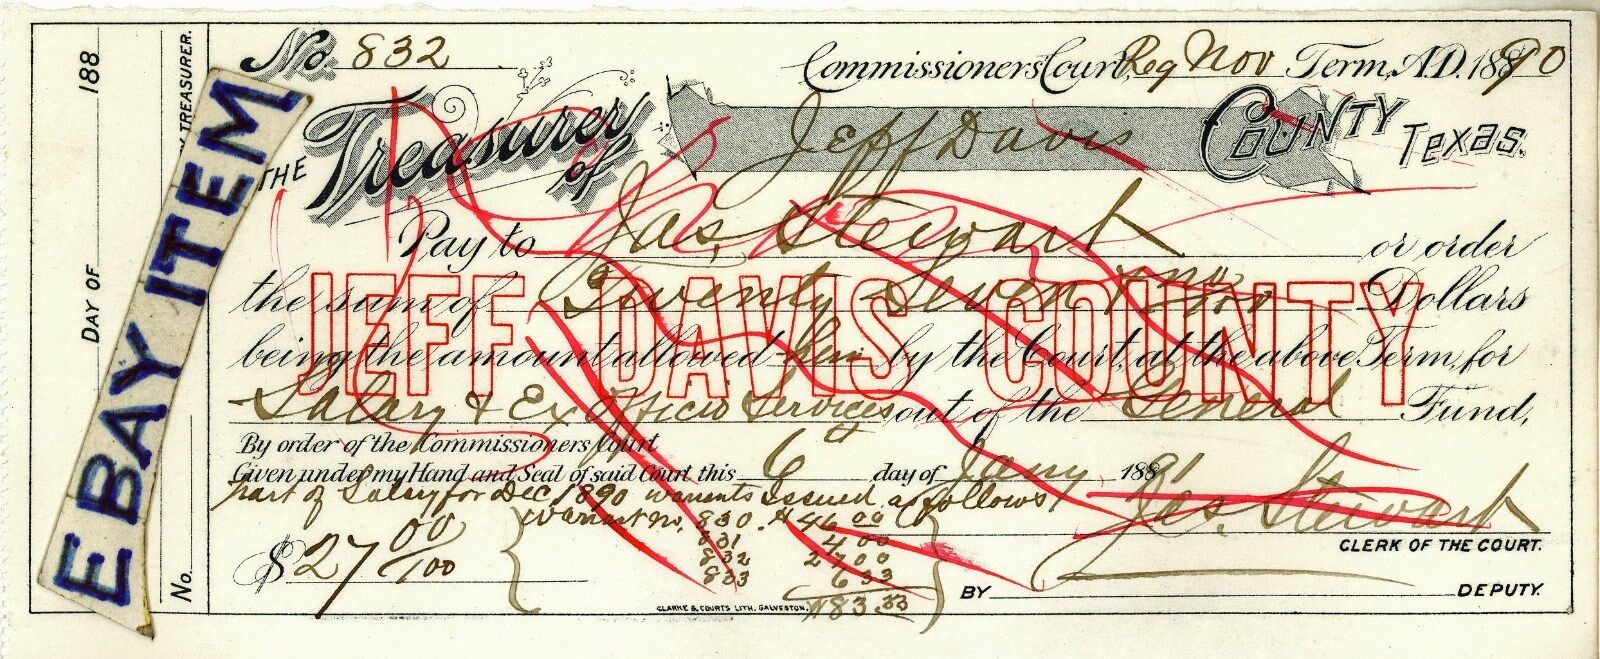 No. 832
Commissioners Court, Reg Nov Term, A.D. 1890
THE Treasurer of Jeff Davis COUNTY Texas.
Pay to Jas. Stewart or order
the sum of Twenty Seven & no/100 Dollars
JEFF DAVIS COUNTY
being the amount allowed him by the Court, at the above Term, for
Salary & Ex Officio Services out of the General Fund,
By order of the Commissioners Court
Given under my Hand and Seal of said Court this 6th day of Jany 1891
part of Salary for Dec 1890 warrants issued as follows
Warrant no. 830 $46 00
831 4 00
832 27 00
833 6 33
$83.33
$27 00/100
Jas. Stewart
CLERK OF THE COURT.
BY DEPUTY.
CLARKE & COURTS LITH. GALVESTON.
188
DAY OF
TREASURER.
No.
EBAY ITEM